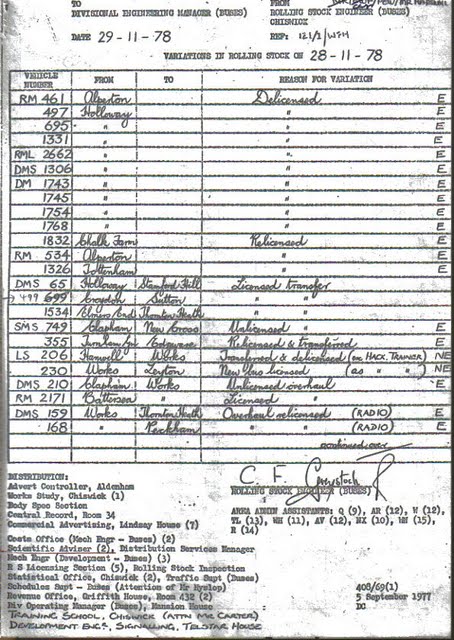 TO FROM
DIVISIONAL ENGINEERING MANAGER (BUSES) ROLLING STOCK ENGINEER (BUSES)
CHISWICK
DATE 29-11-78 REF: 121/2/WTH
VARIATIONS IN ROLLING STOCK ON 28-11-78
VEHICLE NUMBER FROM TO REASON FOR VARIATION
RM 461 Alperton Delicensed E
497 Holloway " E
695 " " E
1331 " " E
RML 2662 " " E
DMS 1306 " " E
DM 1743 " " E
1745 " " E
1754 " " E
1768 " " E
1832 Chalk Farm Relicensed E
RM 534 Alperton " E
1326 Tottenham " E
DMS 65 Holloway Stamford Hill Licensed transfer E
499 699 Croydon Sutton " " E
1534 Elmers End Thornton Heath " " E
SMS 749 Clapham New Cross Unlicensed " E
355 Turnham Gn Edgware Relicensed & transferred E
LS 206 Hanwell Works Transferred & delicensed (ex HACK. TRAINER) NE
230 Works Leyton New bus licensed (as " ") NE
DMS 210 Clapham Works Unlicensed overhaul E
RM 2171 Battersea " Licensed " E
DMS 159 Works Thornton Heath Overhaul relicensed (RADIO) E
168 " Peckham " " (RADIO) E
continued over
DISTRIBUTION:
Advert Controller, Aldenham
Works Study, Chiswick (1)
Body Spec Section
Central Record, Room 34
Commercial Advertising, Lindsay House (7)
Costs Office (Mech Engr - Buses) (2)
Scientific Adviser (2), Distribution Services Manager
Mech Engr (Development - Buses) (3)
R S Licensing Section (5), Rolling Stock Inspection
Statistical Office, Chiswick (2), Traffic Supt (Buses)
Schedules Supt - Buses (Attention of Mr Hyslop)
Revenue Office, Griffith House, Room 432 (2)
Div Operating Manager (Buses), Mansion House
TRAINING SCHOOL, CHISWICK (ATTN MR CARTER)
DEVELOPMENT ENGR. SIGNALLING, TELSTAR HOUSE
C. F.
ROLLING STOCK ENGINEER (BUSES)
AREA ADMIN ASSISTANTS: Q (9), AR (12), W (12),
TL (13), WH (11), AV (12), NX (10), HN (15),
R (14)
408/69(1)
5 September 1977
DG